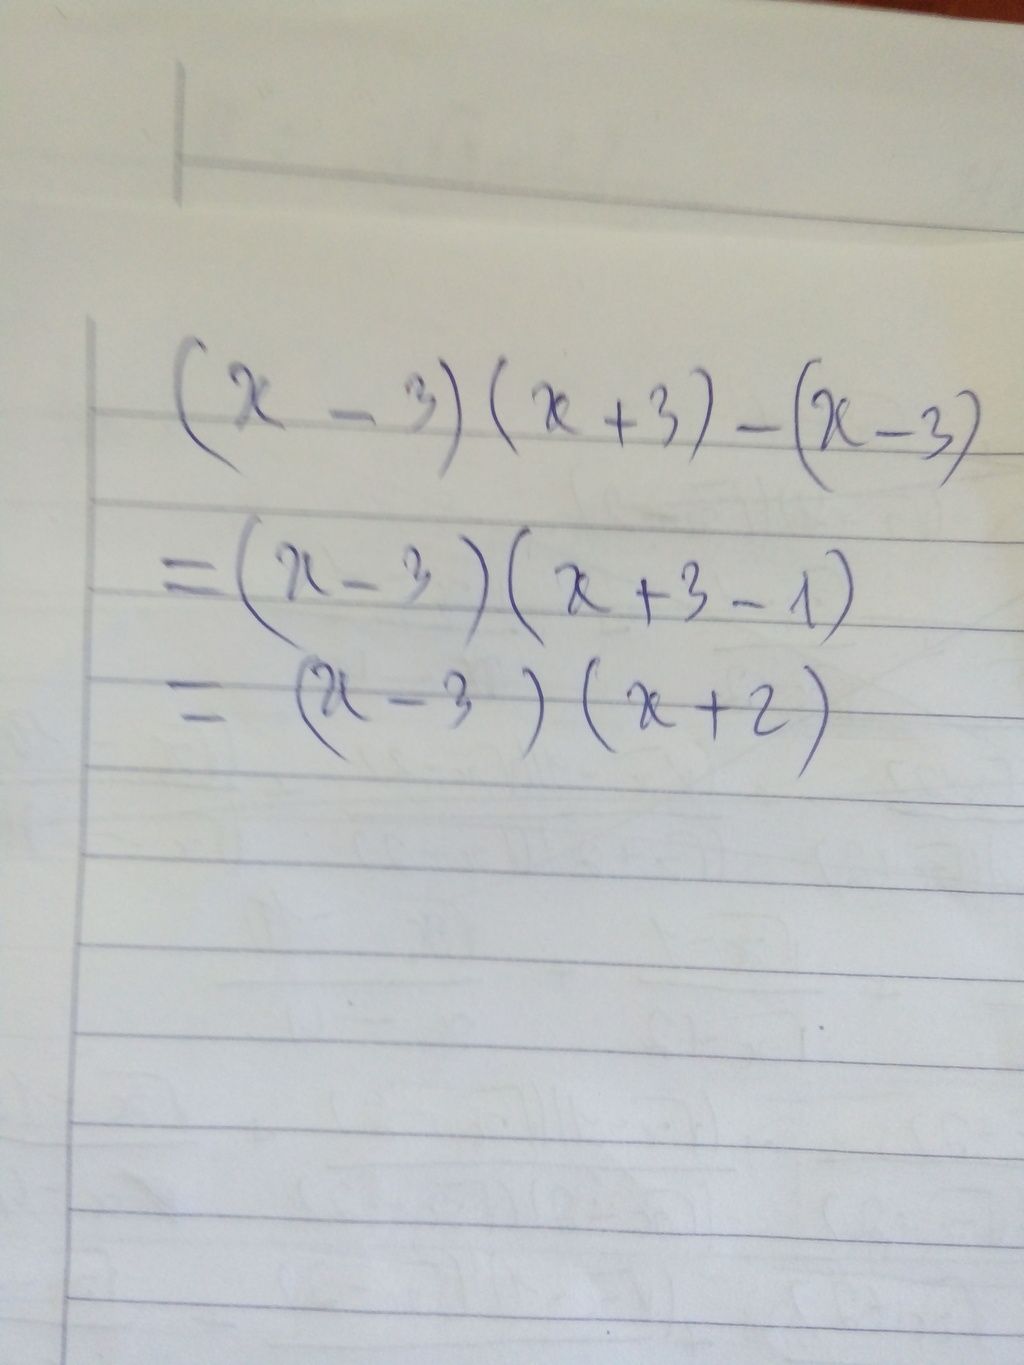 (x - 3)(x + 3) - (x - 3)
= (x - 3)(x + 3 - 1)
= (x - 3)(x + 2)